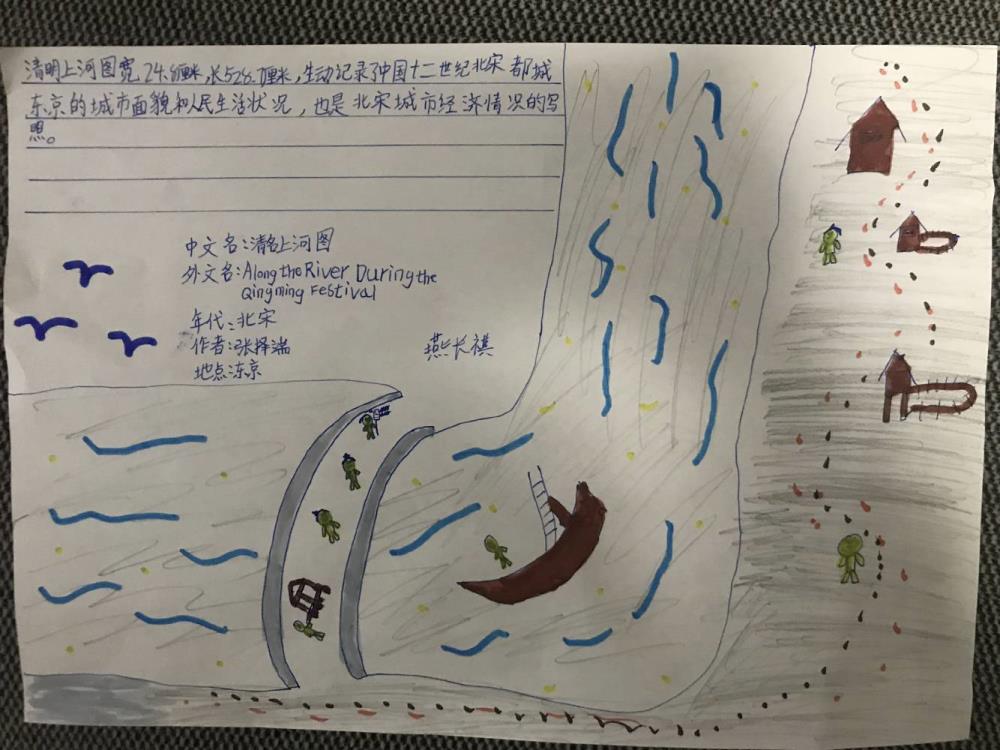 清明上河图宽24.8厘米,长528.7厘米,生动记录了中国十二世纪北宋都城
东京的城市面貌和人民生活状况,也是北宋城市经济情况的写
照。
中文名:清名上河图
外文名:Along the River During the
Qingming Festival
年代:北宋
作者:张择端
地点:东京
燕长祺